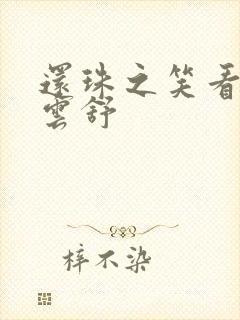 還珠之笑看
雲舒
梓不染